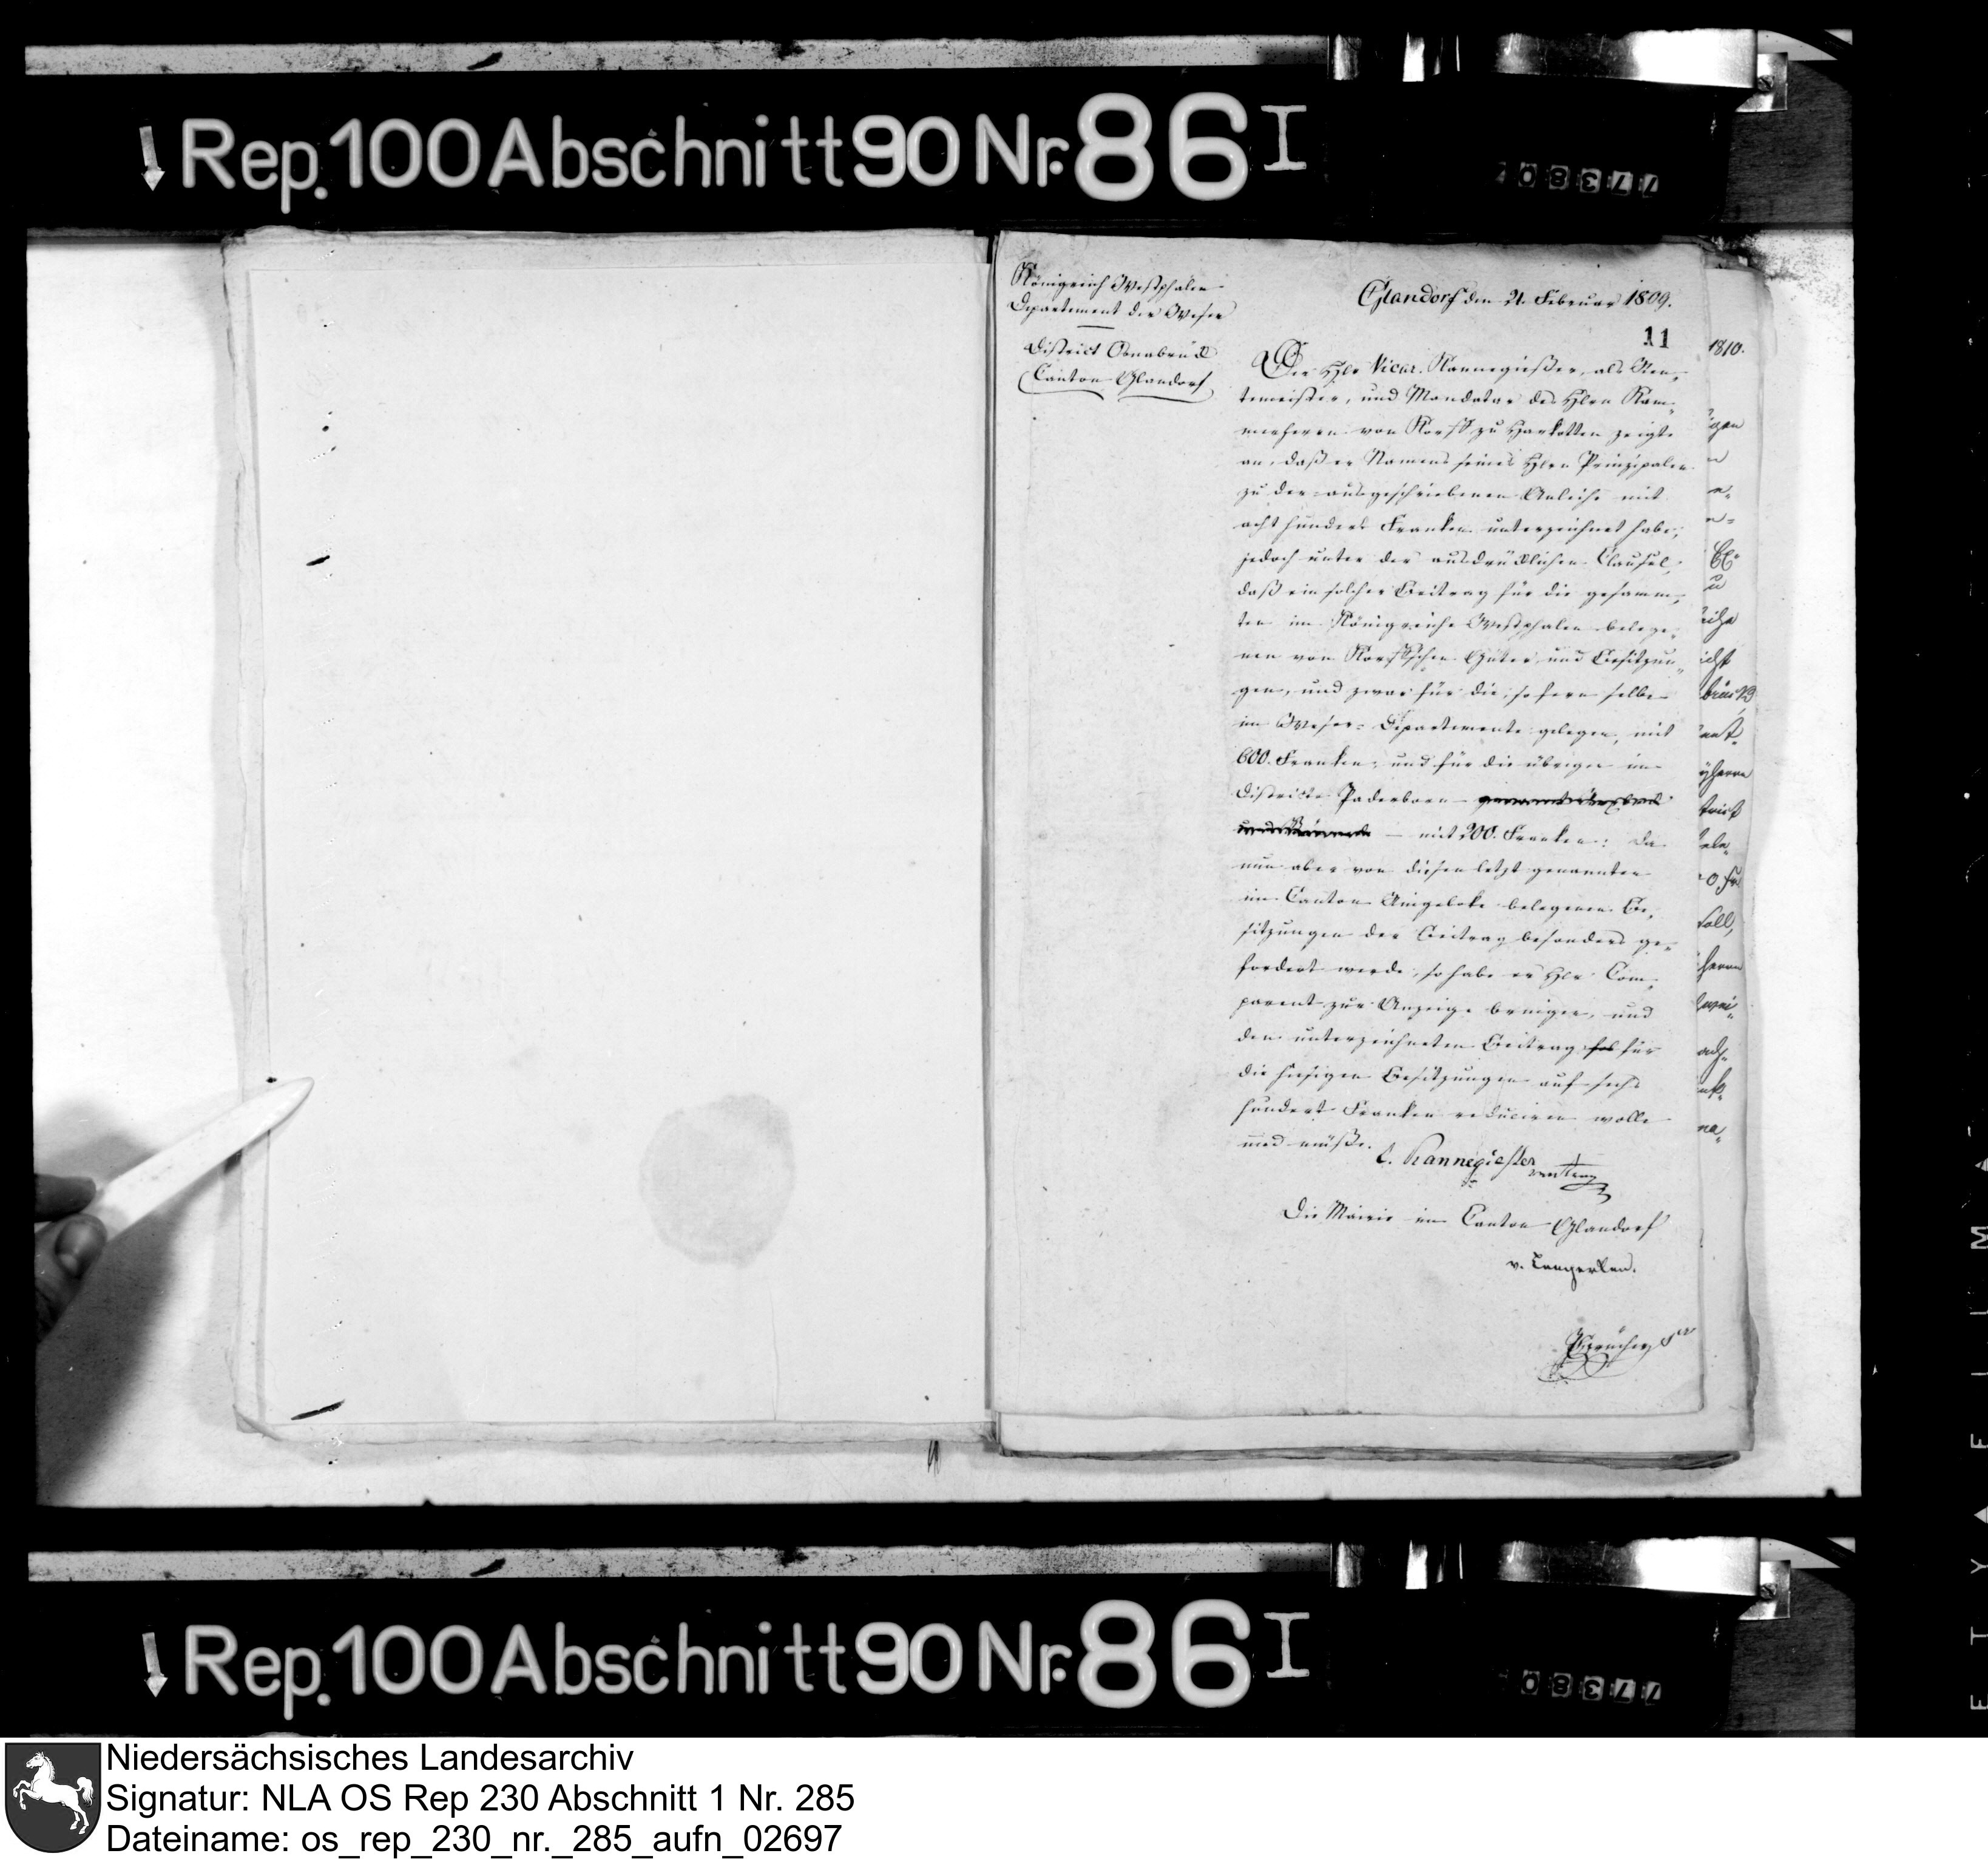 Rep. 100 Abschnitt 90 Nr. 86 I
77380
Königreich Westphalen
Departement der Weser
District Osnabrück
Canton Glandorf
Glandorf den 21. Februar 1809.
11
Der Hr Vicar. Kannegießer, als Ren„
temeister, und Mandatar des Hrn Kam„
merherrn von Korff zu Harkotten zeigte
an, daß er Namens seines Hrn Prinzipalen
zu der ausgeschriebenen Anleihe mit
acht hundert Franken unterzeichnet habe;
jedoch unter der ausdrücklichen Clausel,
daß ein solcher Beitrag für die gesamm„
ten im Königreiche Westphalen belege„
nen von Korffschen Güter und Besitzun„
gen, und zwar für die, sofern selbe
im Weser-Departemente gelegen, mit
600. Franken, und für die übrigen im
Districte Paderborn
und — mit 200. Franken: da
nun aber von diesen letzt genannten
im Canton Ringeloke belegenen Be„
sitzungen der Beitrag besonders ge„
fordert werde, so habe er Hr Com„
parent zur Anzeige bringen, und
den unterzeichneten Beitrag für
die hiesigen Besitzungen auf sechs
hundert Franken reduciren wolle
und müße.
C. Kannegießer
Die Mairie im Canton Glandorf
v. Lengerken.
1810.
Rep. 100 Abschnitt 90 Nr. 86 I
77380
Niedersächsisches Landesarchiv
Signatur: NLA OS Rep 230 Abschnitt 1 Nr. 285
Dateiname: os_rep_230_nr._285_aufn_02697